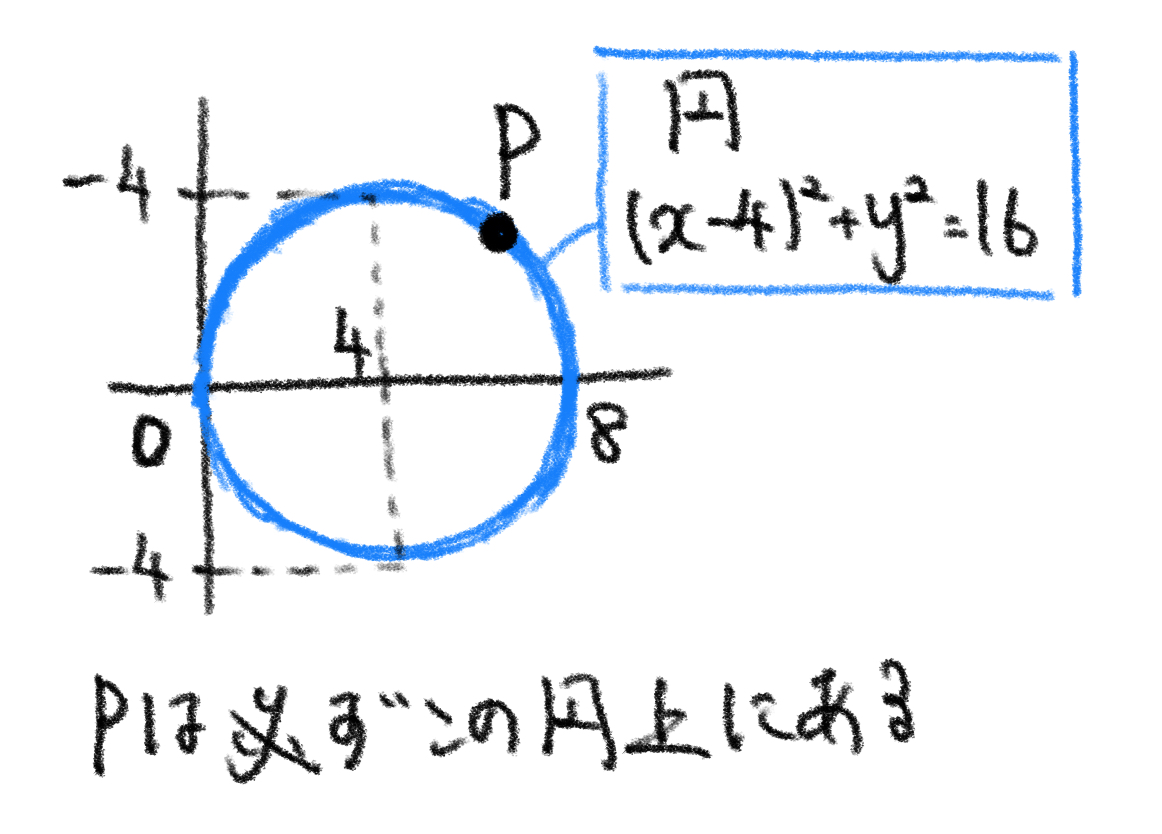 P
円
(x-4)²+y²=16
-4
4
0
8
-4
Pは必ずこの円上にある